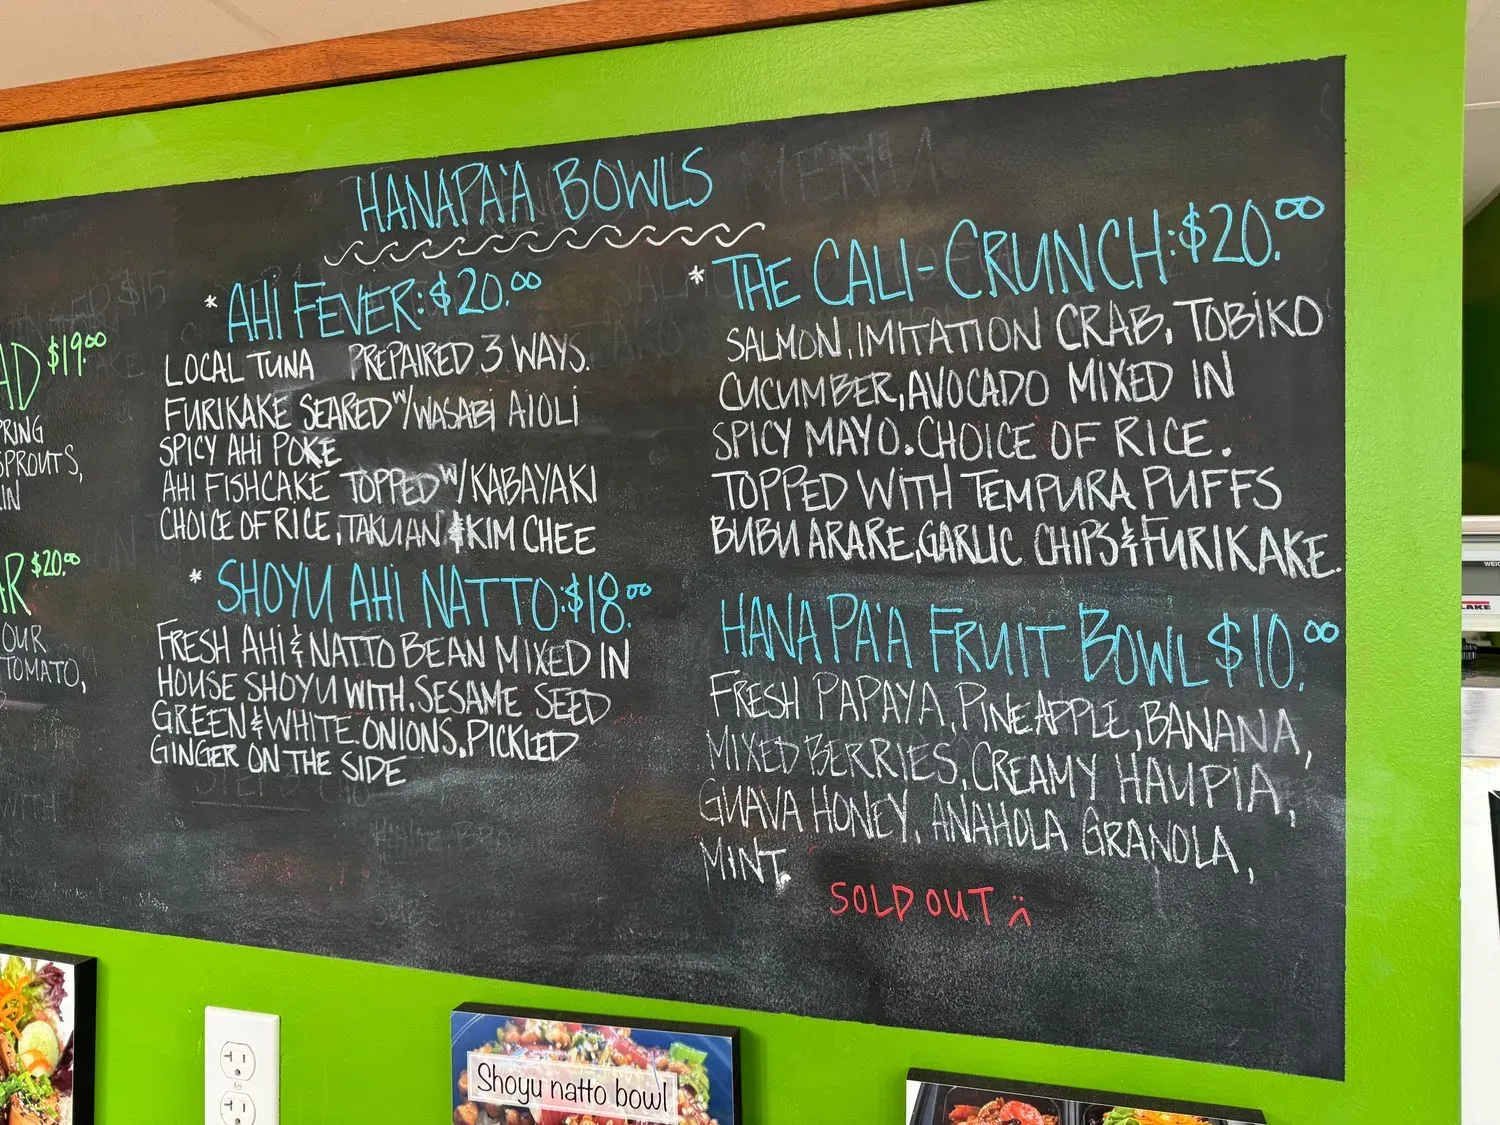 HANAPA'A BOWLS
* AHI FEVER: $20.00
LOCAL TUNA PREPAIRED 3 WAYS.
FURIKAKE SEARED W/WASABI AIOLI
SPICY AHI POKE
AHI FISHCAKE TOPPED W/KABAYAKI
CHOICE OF RICE, TAKUAN & KIM CHEE
* SHOYU AHI NATTO: $18.00
FRESH AHI & NATTO BEAN MIXED IN
HOUSE SHOYU WITH. SESAME SEED
GREEN & WHITE. ONIONS, PICKLED
GINGER ON THE SIDE
* THE CALI-CRUNCH: $20.00
SALMON, IMITATION CRAB, TOBIKO
CUCUMBER, AVOCADO MIXED IN
SPICY MAYO. CHOICE OF RICE.
TOPPED WITH TEMPURA PUFFS
BUBU ARARE, GARLIC CHIPS & FURIKAKE.
HANAPA'A FRUIT BOWL $10.00
FRESH PAPAYA, PINEAPPLE, BANANA,
MIXED BERRIES, CREAMY HAUPIA,
GUAVA HONEY, ANAHOLA GRANOLA,
MINT.
SOLD OUT
$19.00
SPROUTS,
$20.00
OUR
TOMATO,
Shoyu natto bowl